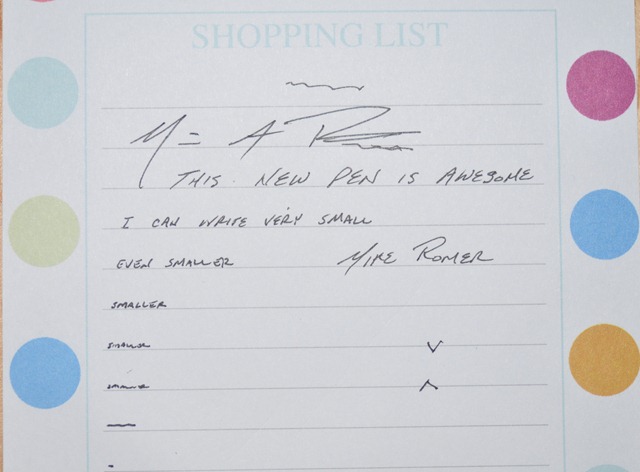 SHOPPING LIST
THIS NEW PEN IS AWESOME
I CAN WRITE VERY SMALL
EVEN SMALLER MIKE ROMER
SMALLER
SMALLER
SMALLER